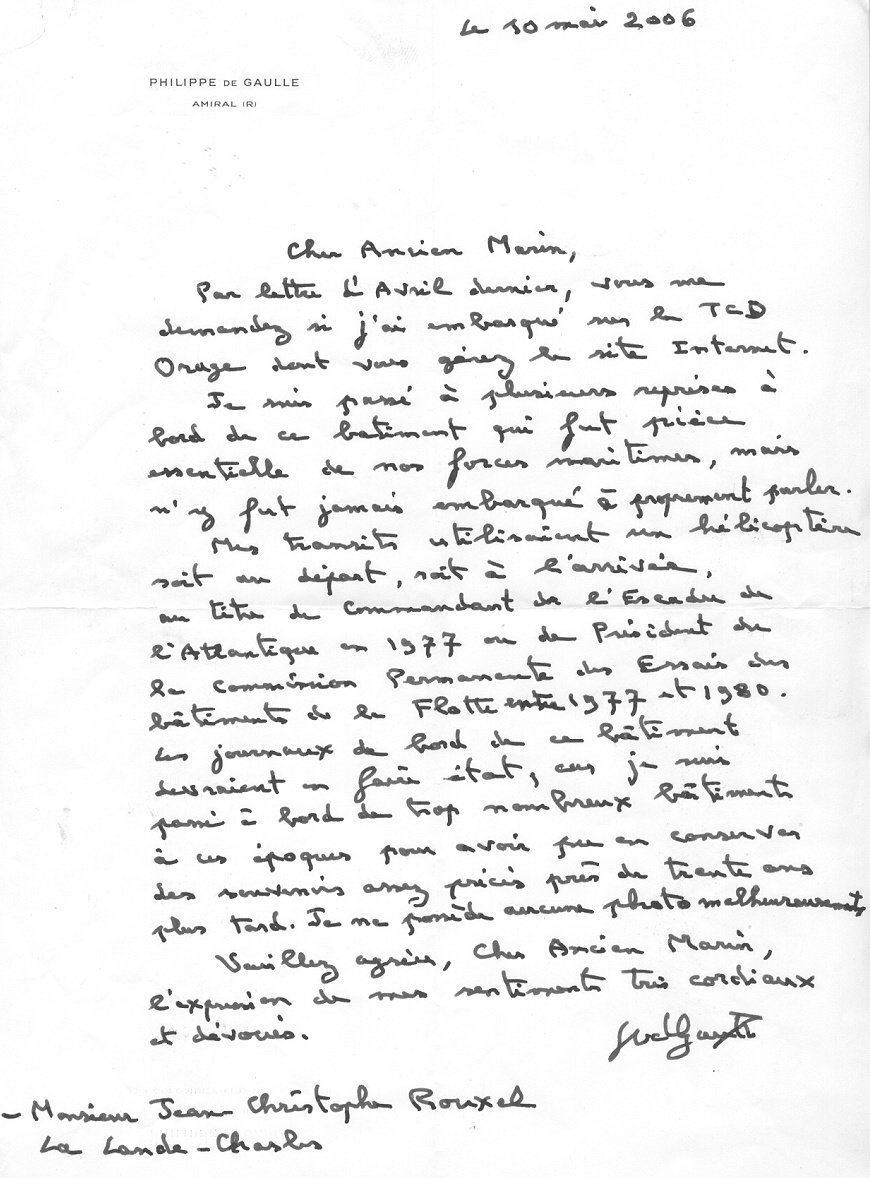 Le 10 mai 2006
PHILIPPE DE GAULLE
AMIRAL (R)
Cher Ancien Marin,
Par lettre d'Avril dernier, vous me
demandez si j'ai embarqué sur le TCD
Orage dont vous gérez le site Internet.
Je suis passé à plusieurs reprises à
bord de ce batiment qui fut pièce
essentielle de nos forces maritimes, mais
n'y fut jamais embarqué à proprement parler.
Mes transits utilisaient un hélicoptère
soit au départ, soit à l'arrivée,
au titre de Commandant de l'Escadre de
l'Atlantique en 1977 ou de Président de
la Commission Permanente des Essais des
bâtiments de la Flotte entre 1977 et 1980.
Les journaux de bord de ce bâtiment
devraient en faire état, car je suis
passé à bord de trop nombreux bâtiments
à ces époques pour avoir pu en conserver
des souvenirs assez précis près de trente ans
plus tard. Je ne possède aucune photo malheureusement,
Veuillez agréer, Cher Ancien Marin,
l'expression de mes sentiments très cordiaux
et dévoués.
- Monsieur Jean Christophe Rouxel
La Lande-Chasles